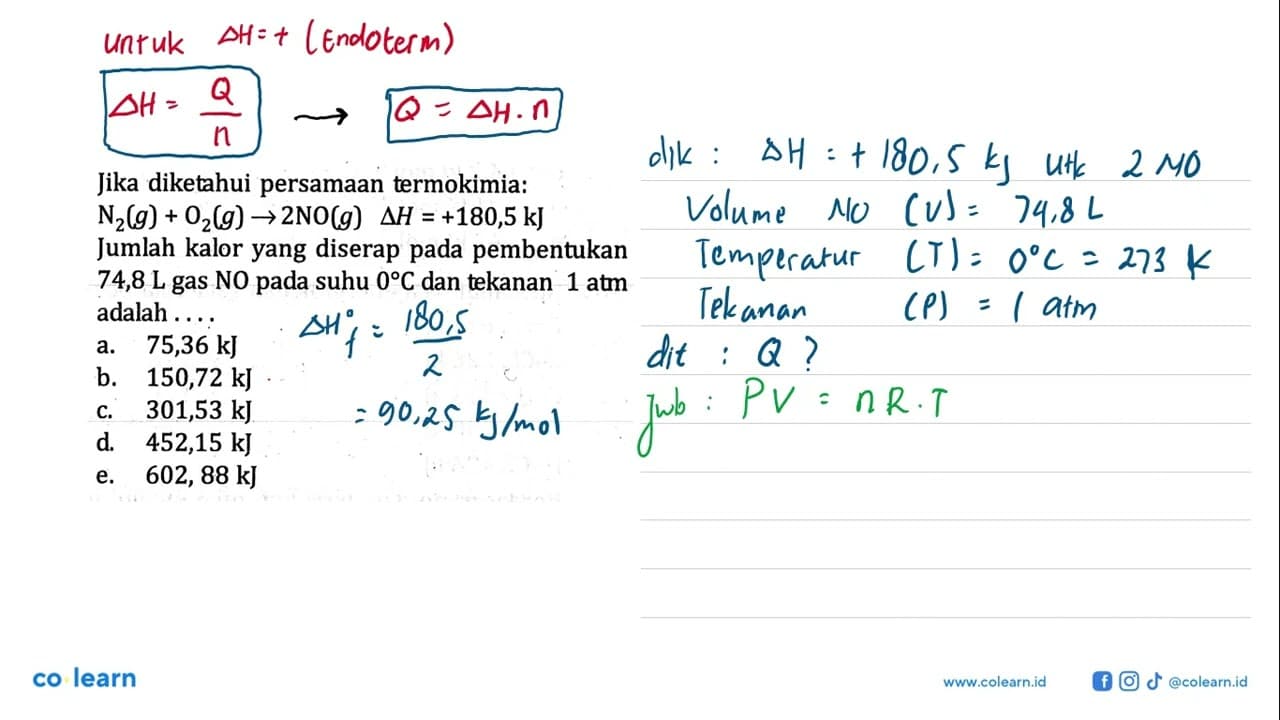 untuk ΔH = + (Endoterm)
ΔH = Q/n → Q = ΔH . n
Jika diketahui persamaan termokimia:
N₂(g) + O₂(g) → 2NO(g) ΔH = +180,5 kJ
Jumlah kalor yang diserap pada pembentukan
74,8 L gas NO pada suhu 0°C dan tekanan 1 atm
adalah . . . .
a. 75,36 kJ
b. 150,72 kJ
c. 301,53 kJ
d. 452,15 kJ
e. 602, 88 kJ
ΔH°f = 180,5/2
= 90,25 kJ/mol
dik : ΔH = + 180,5 kJ utk 2 NO
Volume NO (V) = 74,8 L
Temperatur (T) = 0°C = 273 K
Tekanan (P) = 1 atm
dit : Q ?
Jwb : PV = n R . T
co learn
www.colearn.id
@colearn.id